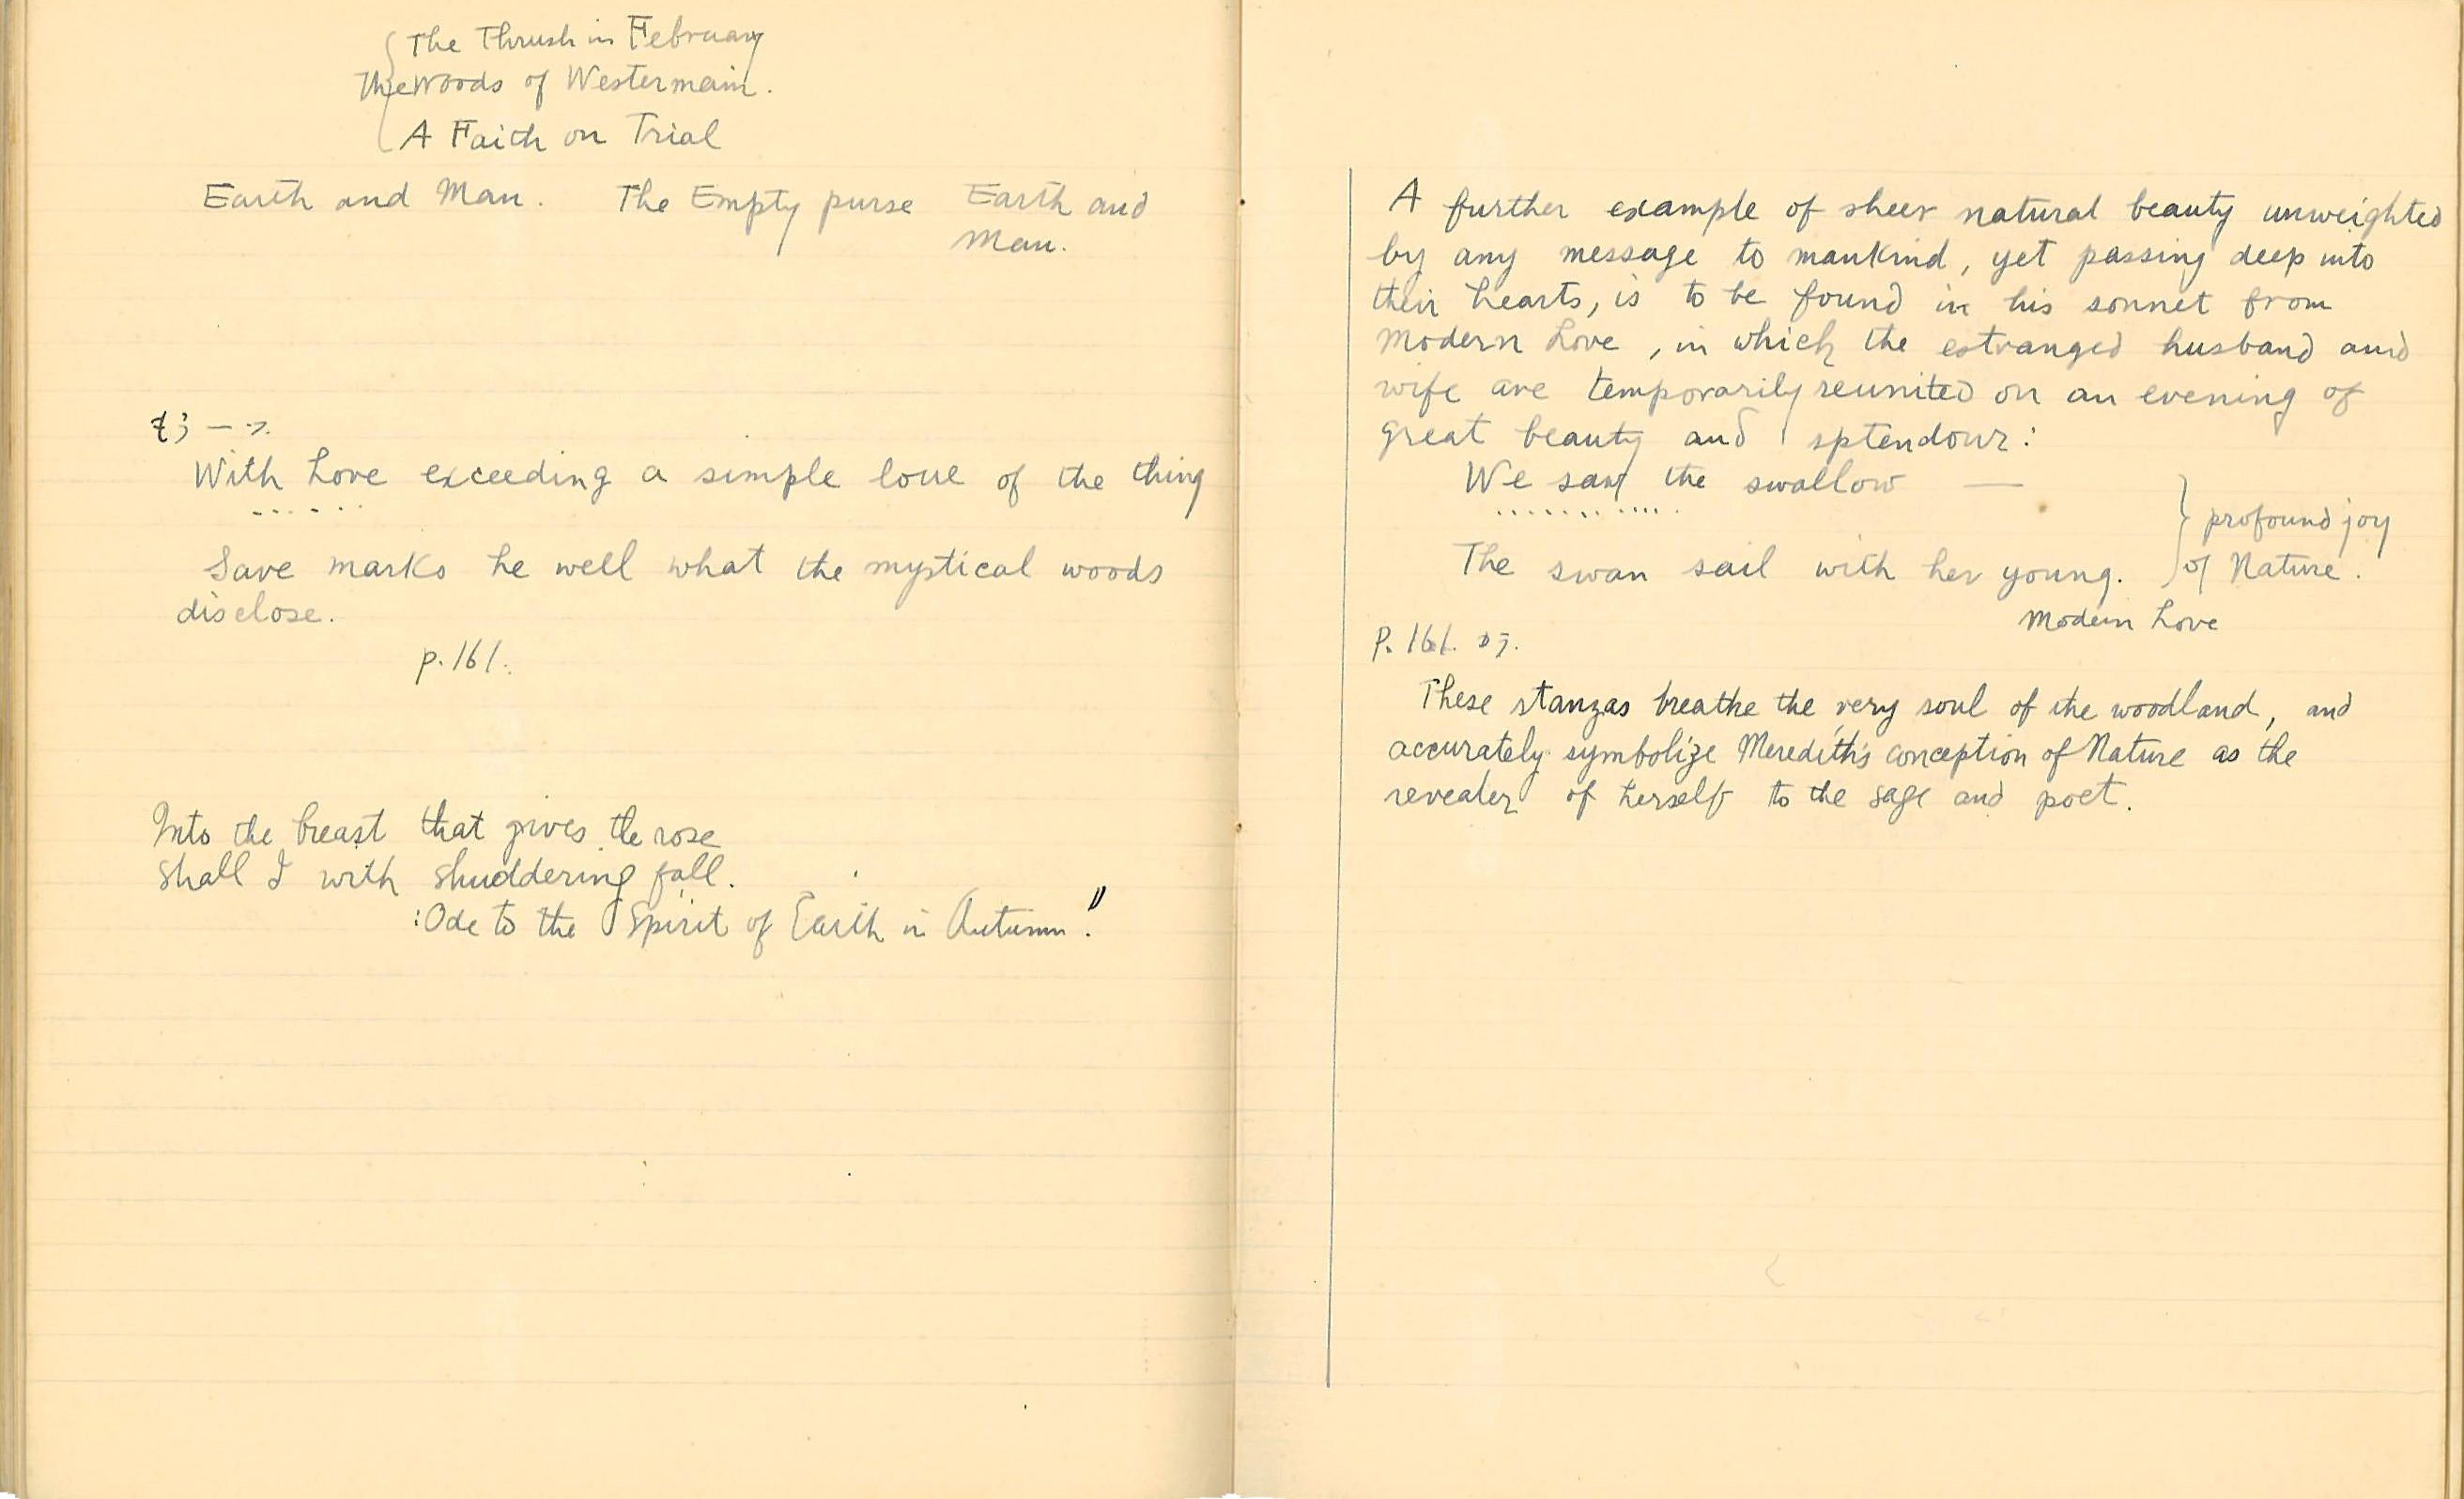 The Thrush in February
The Woods of Westermain.
A Faith on Trial
Earth and Man. The Empty purse Earth and
Man.
With Love exceeding a simple love of the thing
......
Save marks he well what the mystical woods
disclose.
p. 161.
Into the breast that gives the rose
shall I with shuddering fall.
:Ode to the Spirit of Earth in Autumn."
A further example of sheer natural beauty unweighted
by any message to mankind, yet passing deep into
their hearts, is to be found in his sonnet from
Modern Love, in which the estranged husband and
wife are temporarily reunited on an evening of
great beauty and splendour:
We saw the swallow —
............
The swan sail with her young.
} profound joy
of Nature.
Modern Love
P. 161.
These stanzas breathe the very soul of the woodland, and
accurately symbolize Meredith's conception of Nature as the
revealer of herself to the sage and poet.